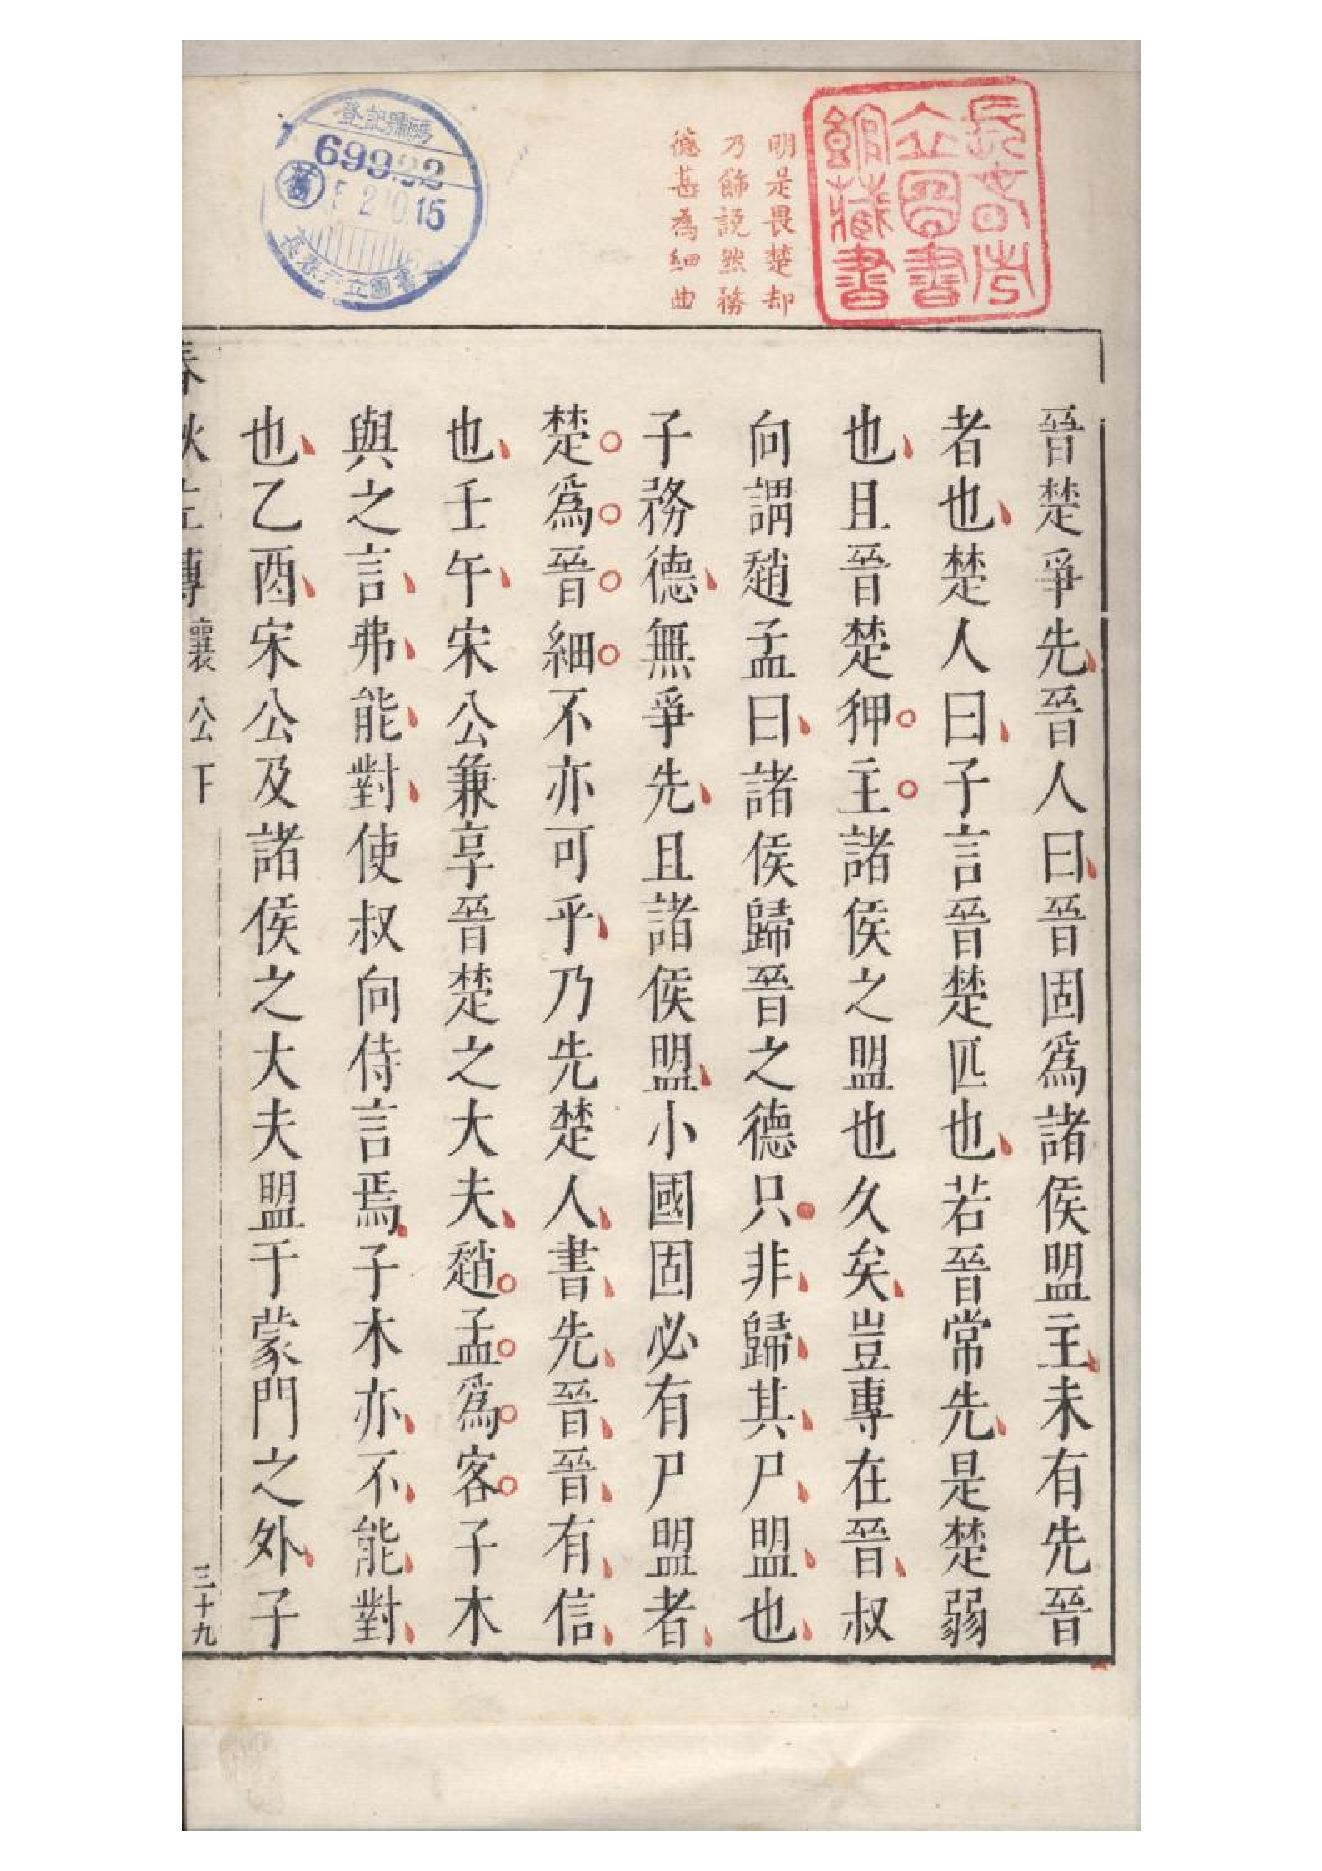 長春市
立圖書
館藏書
明是畏楚却
乃飾說然務
德甚為細曲
登記號碼
舊
長春市立圖書館
晉楚爭先晉人曰晉固爲諸侯盟主未有先晉
者也楚人曰子言晉楚匹也若晉常先是楚弱
也且晉楚狎主諸侯之盟也久矣豈專在晉叔
向謂趙孟曰諸侯歸晉之德只非歸其尸盟也
子務德無爭先且諸侯盟小國固必有尸盟者
楚爲晉細不亦可乎乃先楚人書先晉晉有信
也壬午宋公兼享晉楚之大夫趙孟爲客子木
與之言弗能對使叔向侍言焉子木亦不能對
也乙酉宋公及諸侯之大夫盟于蒙門之外子
春秋左傳 襄公下 三十九